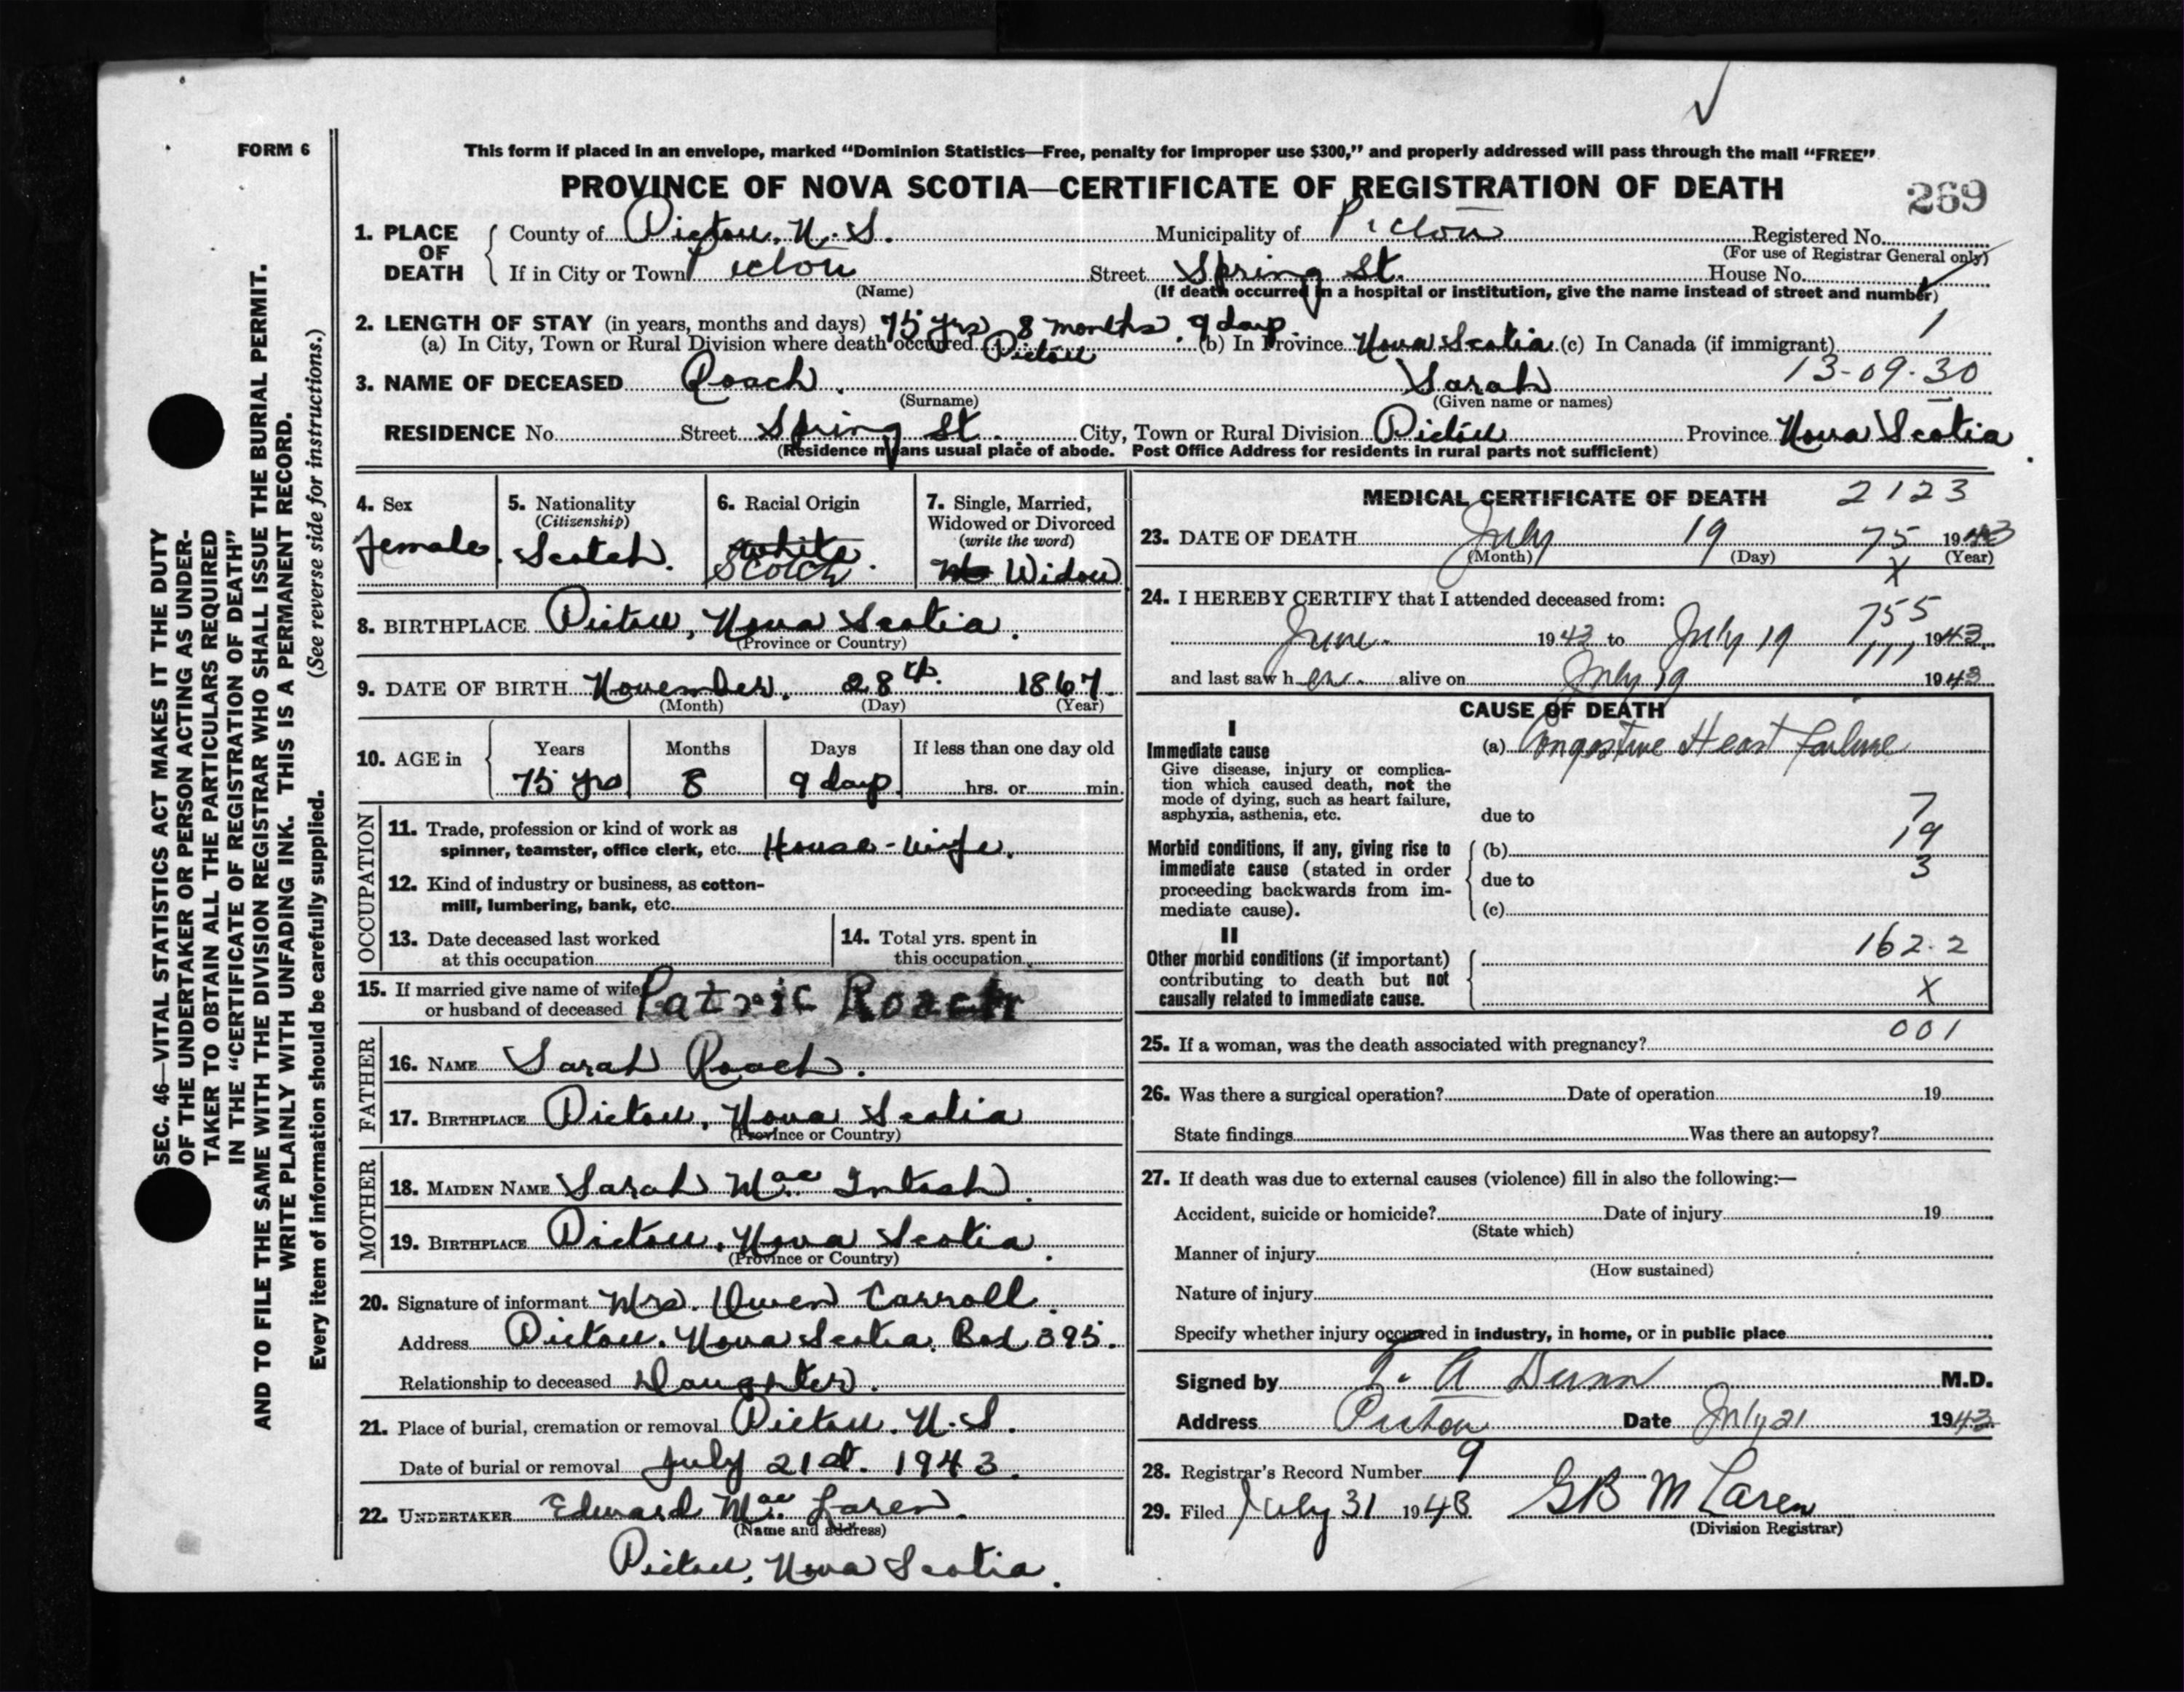 FORM 6
This form if placed in an envelope, marked “Dominion Statistics—Free, penalty for improper use $300,” and properly addressed will pass through the mail “FREE”
PROVINCE OF NOVA SCOTIA—CERTIFICATE OF REGISTRATION OF DEATH
269
1. PLACE OF DEATH County of Pictou, N.S. Municipality of Pictou Registered No.
(For use of Registrar General only)
If in City or Town Pictou Street Spring St. House No.
(Name) (If death occurred in a hospital or institution, give the name instead of street and number)
2. LENGTH OF STAY (in years, months and days) 75 yrs 8 months. 9 days. 1
(a) In City, Town or Rural Division where death occurred Pictou (b) In Province Nova Scotia (c) In Canada (if immigrant)
3. NAME OF DECEASED Roach. Sarah 13-09-30
(Surname) (Given name or names)
RESIDENCE No. Street Spring St. City, Town or Rural Division Pictou Province Nova Scotia
(Residence means usual place of abode. Post Office Address for residents in rural parts not sufficient)
4. Sex
female.
5. Nationality
(Citizenship)
Scotch.
6. Racial Origin
white.
Scotch
7. Single, Married,
Widowed or Divorced
(write the word)
Widow
8. BIRTHPLACE Pictou, Nova Scotia.
(Province or Country)
9. DATE OF BIRTH November. 28th. 1867.
(Month) (Day) (Year)
10. AGE in Years Months Days If less than one day old
75 yrs 8 9 days. hrs. or min.
OCCUPATION
11. Trade, profession or kind of work as
spinner, teamster, office clerk, etc. House-wife.
12. Kind of industry or business, as cotton-
mill, lumbering, bank, etc.
13. Date deceased last worked
at this occupation
14. Total yrs. spent in
this occupation
15. If married give name of wife
or husband of deceased Patric Roach
FATHER
16. NAME Sarah Roach.
17. BIRTHPLACE Pictou, Nova Scotia
(Province or Country)
MOTHER
18. MAIDEN NAME Sarah Mac Intosh.
19. BIRTHPLACE Pictou, Nova Scotia.
(Province or Country)
20. Signature of informant Mrs. Owen Carroll.
Address Pictou, Nova Scotia. Box 395.
Relationship to deceased Daughter.
21. Place of burial, cremation or removal Pictou. N.S.
Date of burial or removal July 21st. 1943.
22. UNDERTAKER Edward Mac Laren.
(Name and address)
Pictou, Nova Scotia.
MEDICAL CERTIFICATE OF DEATH 2123
23. DATE OF DEATH July 19 75 1943
(Month) (Day) X (Year)
24. I HEREBY CERTIFY that I attended deceased from:
755
June 1943 to July 19 1943
and last saw her alive on July 19 1943
CAUSE OF DEATH
I
Immediate cause (a) Congestive Heart failure
Give disease, injury or complica-
tion which caused death, not the
mode of dying, such as heart failure,
asphyxia, asthenia, etc. due to 7
19
Morbid conditions, if any, giving rise to (b)
immediate cause (stated in order 3
proceeding backwards from im- due to
mediate cause). (c)
II
Other morbid conditions (if important) 162.2
contributing to death but not
causally related to immediate cause. X
001
25. If a woman, was the death associated with pregnancy?
26. Was there a surgical operation? Date of operation 19
State findings Was there an autopsy?
27. If death was due to external causes (violence) fill in also the following:—
Accident, suicide or homicide? Date of injury 19
(State which)
Manner of injury
(How sustained)
Nature of injury
Specify whether injury occurred in industry, in home, or in public place
Signed by T. A Dunn M.D.
Address Pictou Date July 21 1943
28. Registrar's Record Number 9
29. Filed July 31 1943 GB McLaren
(Division Registrar)
SEC. 46—VITAL STATISTICS ACT MAKES IT THE DUTY
OF THE UNDERTAKER OR PERSON ACTING AS UNDER-
TAKER TO OBTAIN ALL THE PARTICULARS REQUIRED
IN THE “CERTIFICATE OF REGISTRATION OF DEATH”
AND TO FILE THE SAME WITH THE DIVISION REGISTRAR WHO SHALL ISSUE THE BURIAL PERMIT.
WRITE PLAINLY WITH UNFADING INK. THIS IS A PERMANENT RECORD.
Every item of information should be carefully supplied. (See reverse side for instructions.)